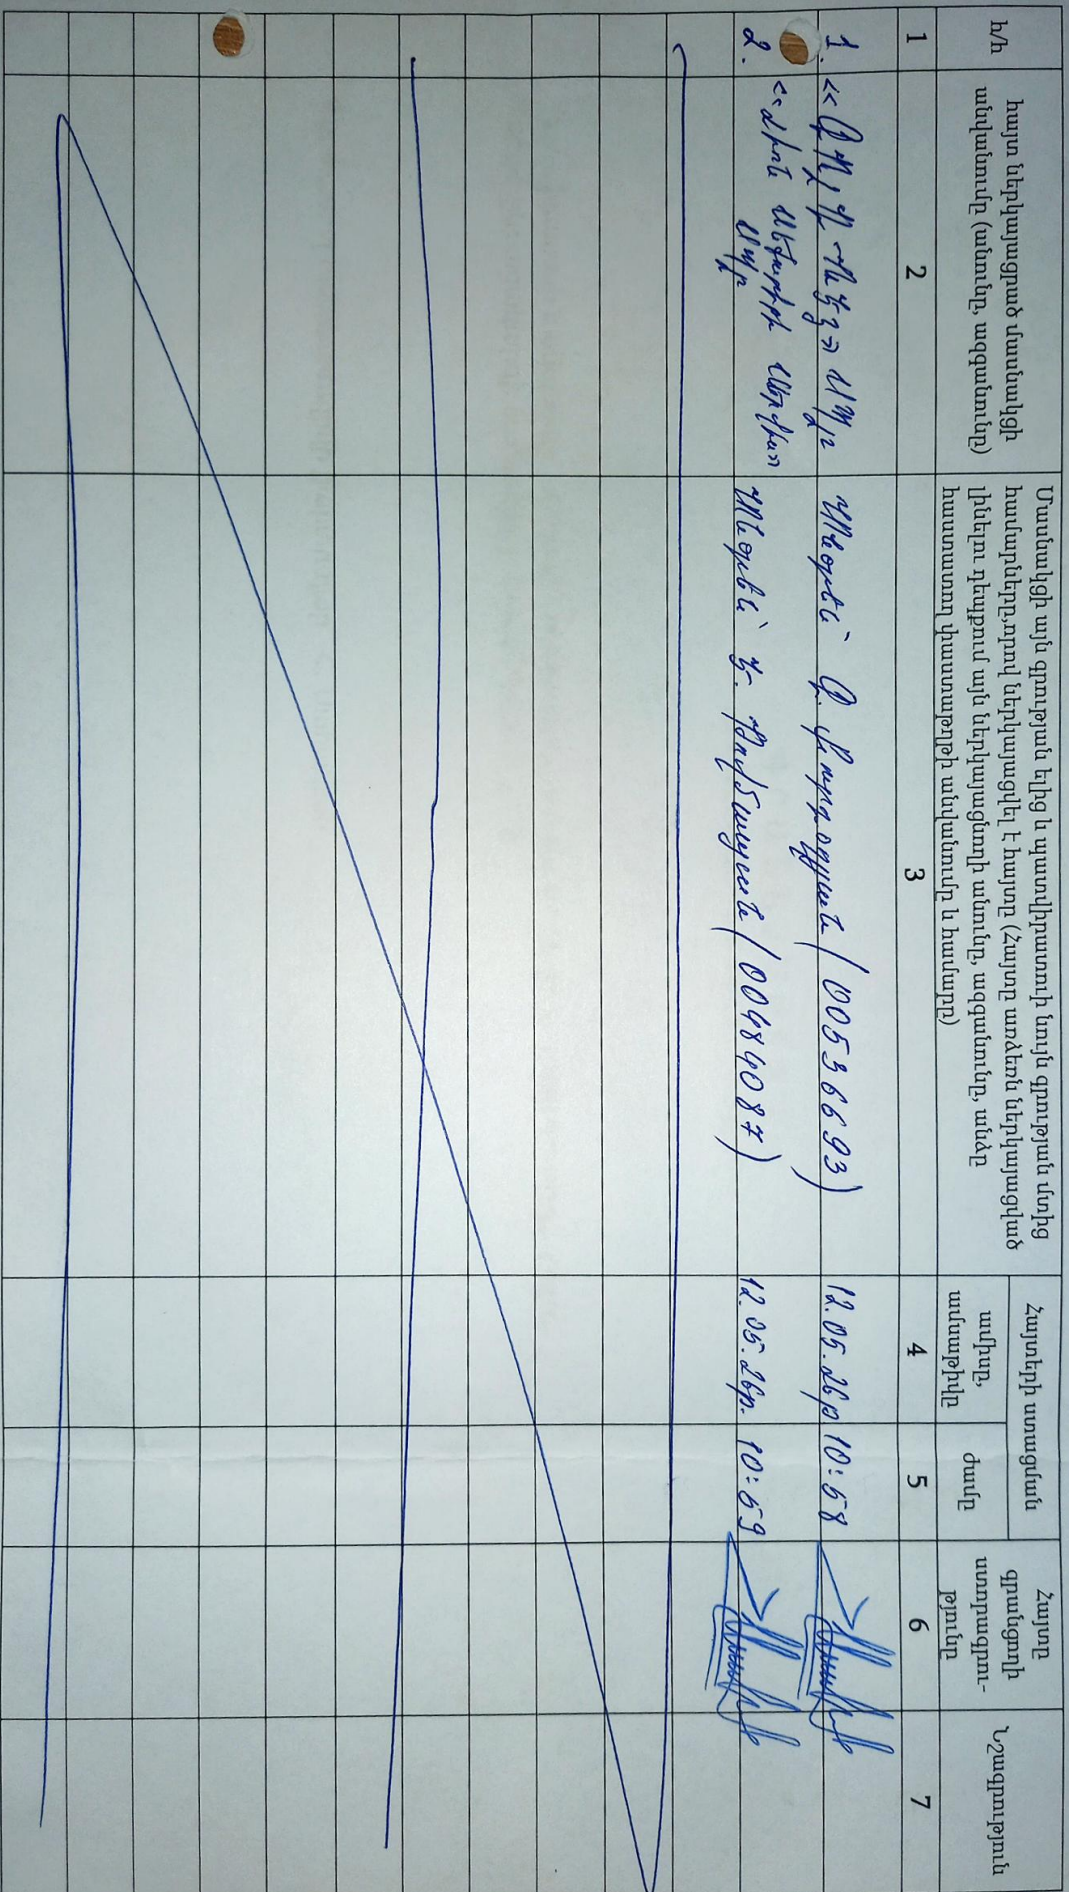 հ/հ
հայտ ներկայացրած մասնակցի
անվանումը (անունը, ազգանունը)
Մասնակցի այն գրության ելից և պատվիրատուի նույն գրության մտից
համարները,որով ներկայացվել է հայտը (Հայտը առձեռն ներկայացված
լինելու դեպքում այն ներկայացնողի անունը, ազգանունը, անձը
հաստատող փաստաթղթի անվանումը և համարը)
Հայտերի ստացման
ամիսը,
ամսաթիվը
ժամը
Հայտը
գրանցողի
ստորագրու-
թյունը
Նշագրություն
1 2 3 4 5 6 7
1. ՍՊԸ Տնօրեն՝ (00536693) 12.05.26թ 10:58
2. «Վիոն Սեքյուրիթի Սերվիս» Տնօրեն՝ (00484087) 12.05.26թ. 10:59
ՍՊԸ